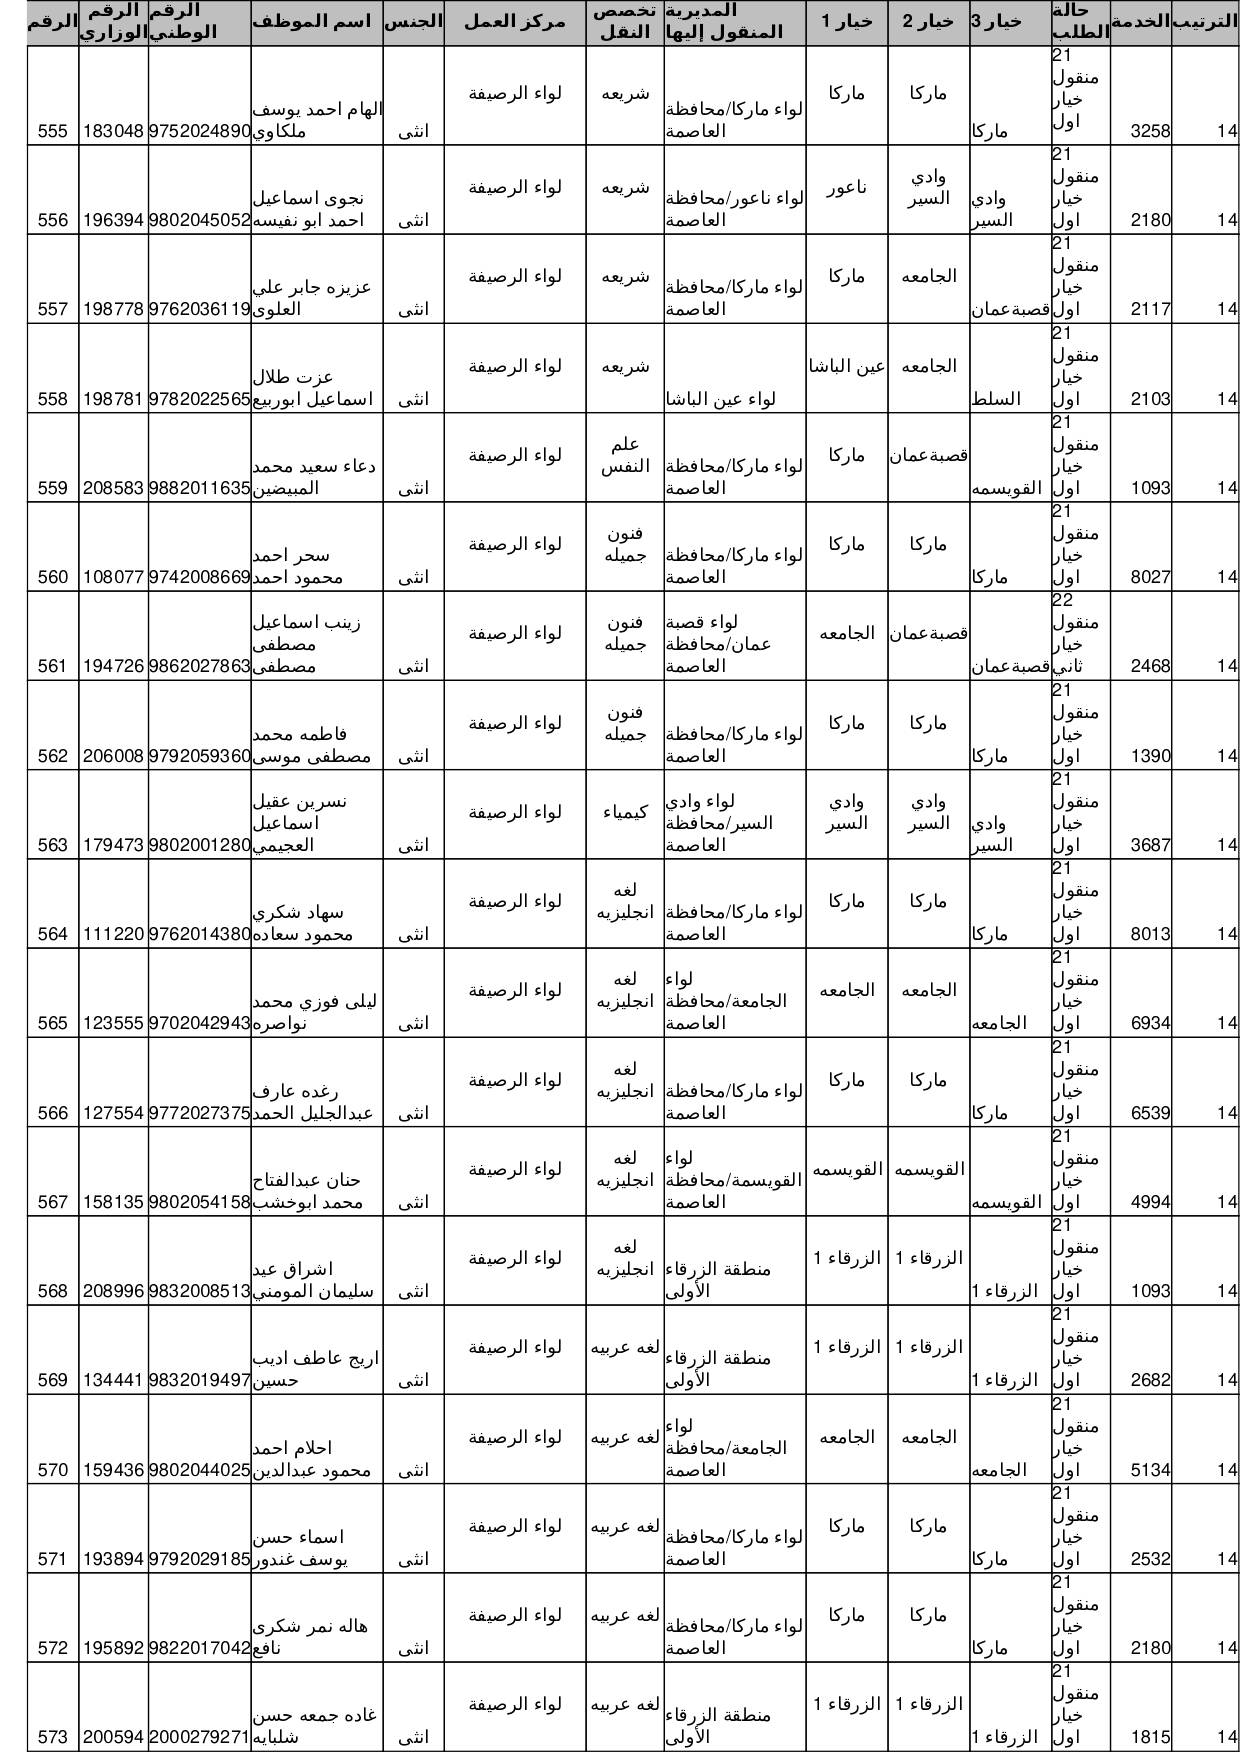 الرقم الرقم الوزاري الرقم الوطني اسم الموظف الجنس مركز العمل تخصص النقل المديرية المنقول إليها خيار 1 خيار 2 خيار 3 حالة الطلب الخدمة الترتيب
555 183048 9752024890 الهام احمد يوسف ملكاوي انثى لواء الرصيفة شريعه لواء ماركا/محافظة العاصمة ماركا ماركا ماركا 21 منقول خيار اول 3258 14
556 196394 9802045052 نجوى اسماعيل احمد ابو نفيسه انثى لواء الرصيفة شريعه لواء ناعور/محافظة العاصمة ناعور وادي السير وادي السير 21 منقول خيار اول 2180 14
557 198778 9762036119 عزيزه جابر علي العلوى انثى لواء الرصيفة شريعه لواء ماركا/محافظة العاصمة ماركا الجامعه قصبةعمان 21 منقول خيار اول 2117 14
558 198781 9782022565 عزت طلال اسماعيل ابوربيع انثى لواء الرصيفة شريعه لواء عين الباشا عين الباشا الجامعه السلط 21 منقول خيار اول 2103 14
559 208583 9882011635 دعاء سعيد محمد المبيضين انثى لواء الرصيفة علم النفس لواء ماركا/محافظة العاصمة ماركا قصبةعمان القويسمه 21 منقول خيار اول 1093 14
560 108077 9742008669 سحر احمد محمود احمد انثى لواء الرصيفة فنون جميله لواء ماركا/محافظة العاصمة ماركا ماركا ماركا 21 منقول خيار اول 8027 14
561 194726 9862027863 زينب اسماعيل مصطفى مصطفى انثى لواء الرصيفة فنون جميله لواء قصبة عمان/محافظة العاصمة الجامعه قصبةعمان قصبةعمان 22 منقول خيار ثاني 2468 14
562 206008 9792059360 فاطمه محمد مصطفى موسى انثى لواء الرصيفة فنون جميله لواء ماركا/محافظة العاصمة ماركا ماركا ماركا 21 منقول خيار اول 1390 14
563 179473 9802001280 نسرين عقيل اسماعيل العجيمي انثى لواء الرصيفة كيمياء لواء وادي السير/محافظة العاصمة وادي السير وادي السير وادي السير 21 منقول خيار اول 3687 14
564 111220 9762014380 سهاد شكري محمود سعاده انثى لواء الرصيفة لغه انجليزيه لواء ماركا/محافظة العاصمة ماركا ماركا ماركا 21 منقول خيار اول 8013 14
565 123555 9702042943 ليلى فوزي محمد نواصره انثى لواء الرصيفة لغه انجليزيه لواء الجامعة/محافظة العاصمة الجامعه الجامعه الجامعه 21 منقول خيار اول 6934 14
566 127554 9772027375 رغده عارف عبدالجليل الحمد انثى لواء الرصيفة لغه انجليزيه لواء ماركا/محافظة العاصمة ماركا ماركا ماركا 21 منقول خيار اول 6539 14
567 158135 9802054158 حنان عبدالفتاح محمد ابوخشب انثى لواء الرصيفة لغه انجليزيه لواء القويسمة/محافظة العاصمة القويسمه القويسمه القويسمه 21 منقول خيار اول 4994 14
568 208996 9832008513 اشراق عيد سليمان المومني انثى لواء الرصيفة لغه انجليزيه منطقة الزرقاء الأولى الزرقاء 1 الزرقاء 1 الزرقاء 1 21 منقول خيار اول 1093 14
569 134441 9832019497 اريج عاطف اديب حسين انثى لواء الرصيفة لغه عربيه منطقة الزرقاء الأولى الزرقاء 1 الزرقاء 1 الزرقاء 1 21 منقول خيار اول 2682 14
570 159436 9802044025 احلام احمد محمود عبدالدين انثى لواء الرصيفة لغه عربيه لواء الجامعة/محافظة العاصمة الجامعه الجامعه الجامعه 21 منقول خيار اول 5134 14
571 193894 9792029185 اسماء حسن يوسف غندور انثى لواء الرصيفة لغه عربيه لواء ماركا/محافظة العاصمة ماركا ماركا ماركا 21 منقول خيار اول 2532 14
572 195892 9822017042 هاله نمر شكرى نافع انثى لواء الرصيفة لغه عربيه لواء ماركا/محافظة العاصمة ماركا ماركا ماركا 21 منقول خيار اول 2180 14
573 200594 2000279271 غاده جمعه حسن شلبايه انثى لواء الرصيفة لغه عربيه منطقة الزرقاء الأولى الزرقاء 1 الزرقاء 1 الزرقاء 1 21 منقول خيار اول 1815 14